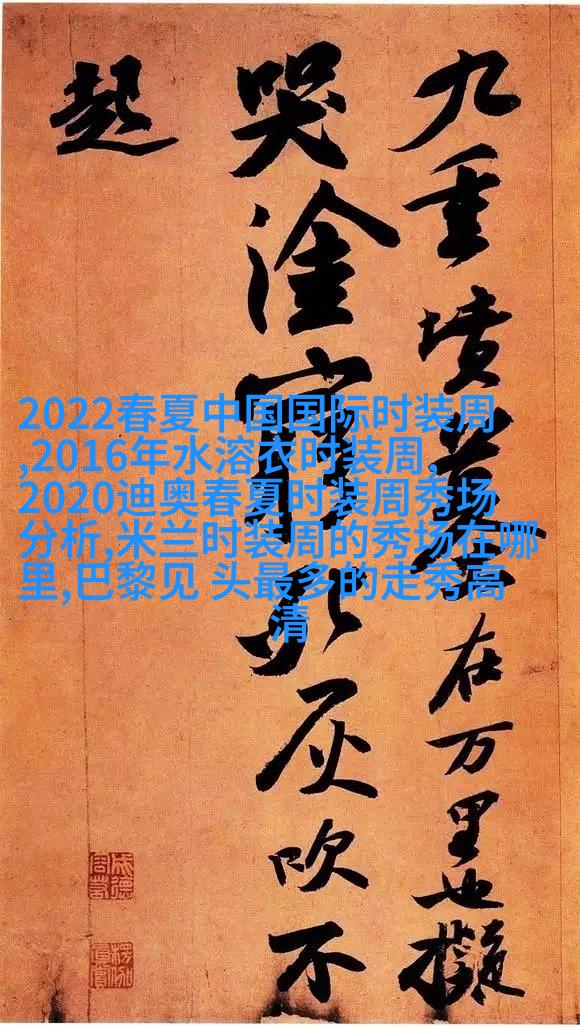 九重墳墓在万里也擬
哭塗窮死灰吹不
起
2022春夏中国国际时装周
,2016年水溶衣时装周,
2020迪奥春夏时装周秀场
分析,米兰时装周的秀场在哪
里,巴黎见 头最多的走秀高
清
成德
容若
楞伽
真賞